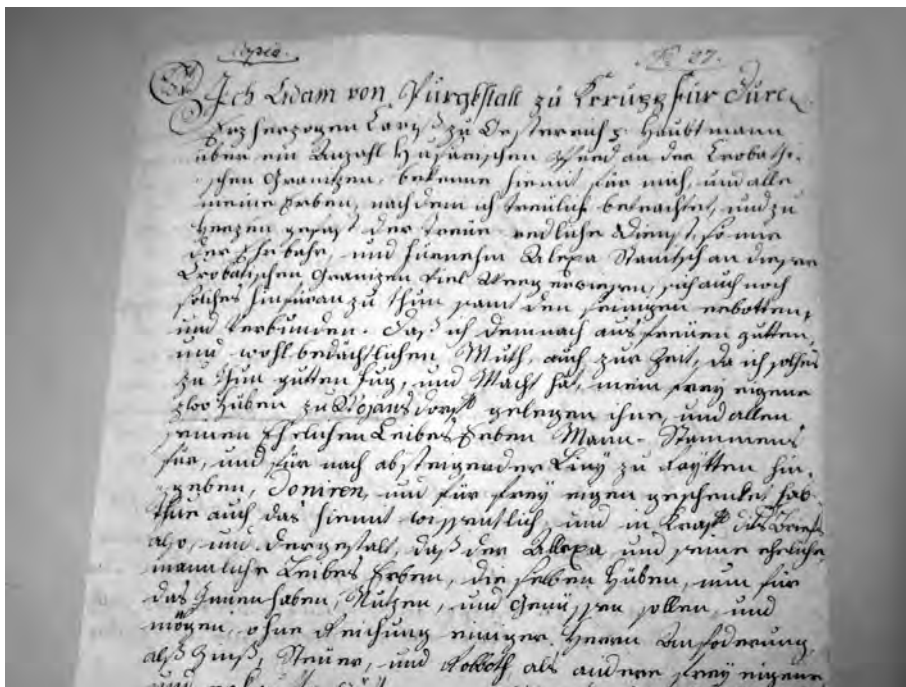 Copia.
No 27.
Ich Adam von Purgkstall zu Krrupp für Durc
Erzherzogen Carlß zu Oesterreich p. Haubtmann
über ein Anzahl Husarischen Pferd an der Crobati-
schen Granitzen, bekenne hiemit für mich, und alle
meine Erben, nach dem ich treülich betrachtet, und zu
Herzen gefast der treüe redliche Dienst, so mir
der Ehrbahr, und fürnehm Alexa Stanisch an dieser
Crobatischen Granizen viel weeg erwiesen, sich auch noch
solches hinfüran zu thun samt den seinigen erbotten,
und verbunden. Daß ich demnach aus freüen gutten,
und wohlbedächtlichen Muth, auch zur Zeit, da ich solches
zu thun gutten fug, und Macht hab, mein frey eigene
zwo Huben zu Bojansdorff gelegen ihne, und allen
seinen Ehelichen Leibes Erben Mann-Stammens
für, und für nach absteigender Liny zu raytten hin-
geben, Doniren, und für frey eigen geschenkt hab
thue auch das hiemit wissentlich, und in Krafft dis Briefs
also, und dergestalt, daß der Allexa, und seine eheliche
mannliche Leibes Erben, die selben Huben, nun für
das Innenhaben, Nutzen, und Genüssen sollen, und
mögen, ohne Reichung einiger Herrn Anforderung,
alß Zinß, Steuer, und Robboth, als andere frey eigene
und